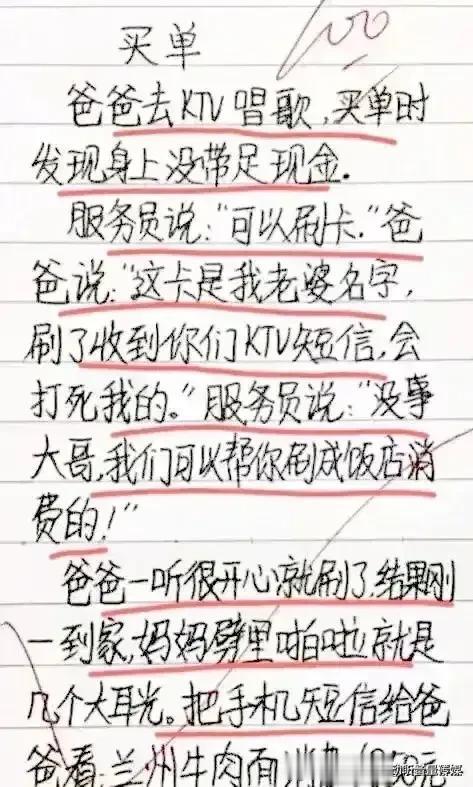 100
买单
爸爸去KTV唱歌,买单时
发现身上没带足现金.
服务员说:“可以刷卡.”爸
爸说:“这卡是我老婆名字,
刷了收到你们KTV短信,会
打死我的。”服务员说:“没事
大哥,我们可以帮你刷成饭店消
费的!”
爸爸一听很开心就刷了,结果刚
一到家,妈妈劈里啪啦就是
几个大耳光。把手机短信给爸
爸看:兰州牛肉面